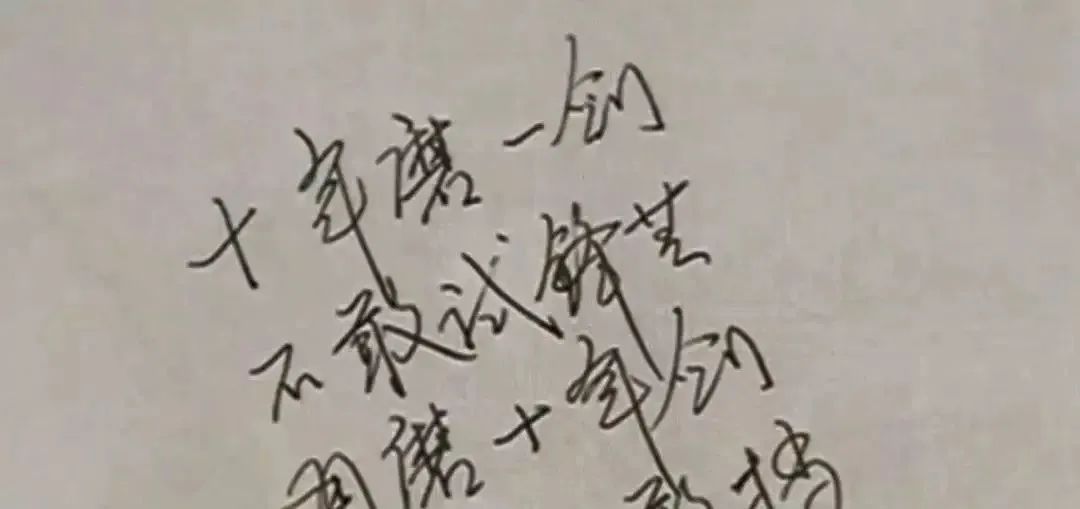 十年磨一剑
不敢试锋芒
再磨十年剑